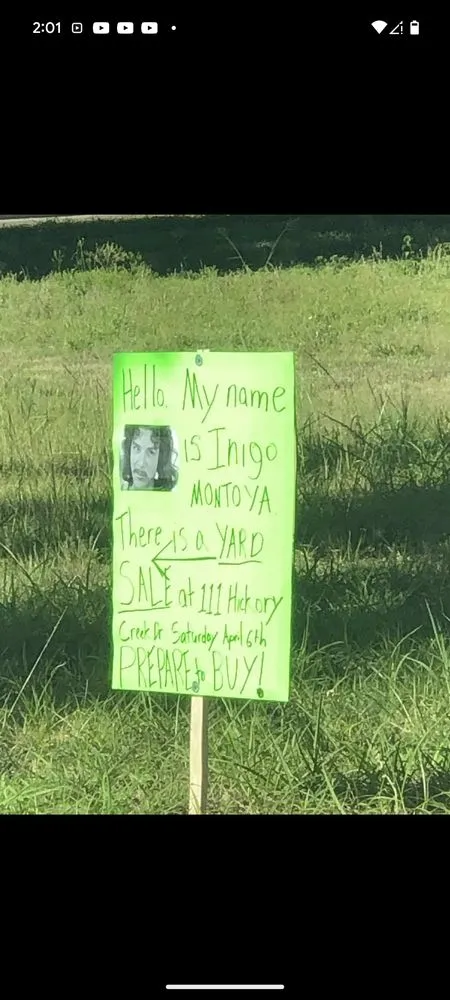 2:01
Hello. My name
is Inigo
MONTOYA
There is a YARD
SALE at 111 Hickory
Creek Dr Saturday April 6th
PREPARE to BUY!